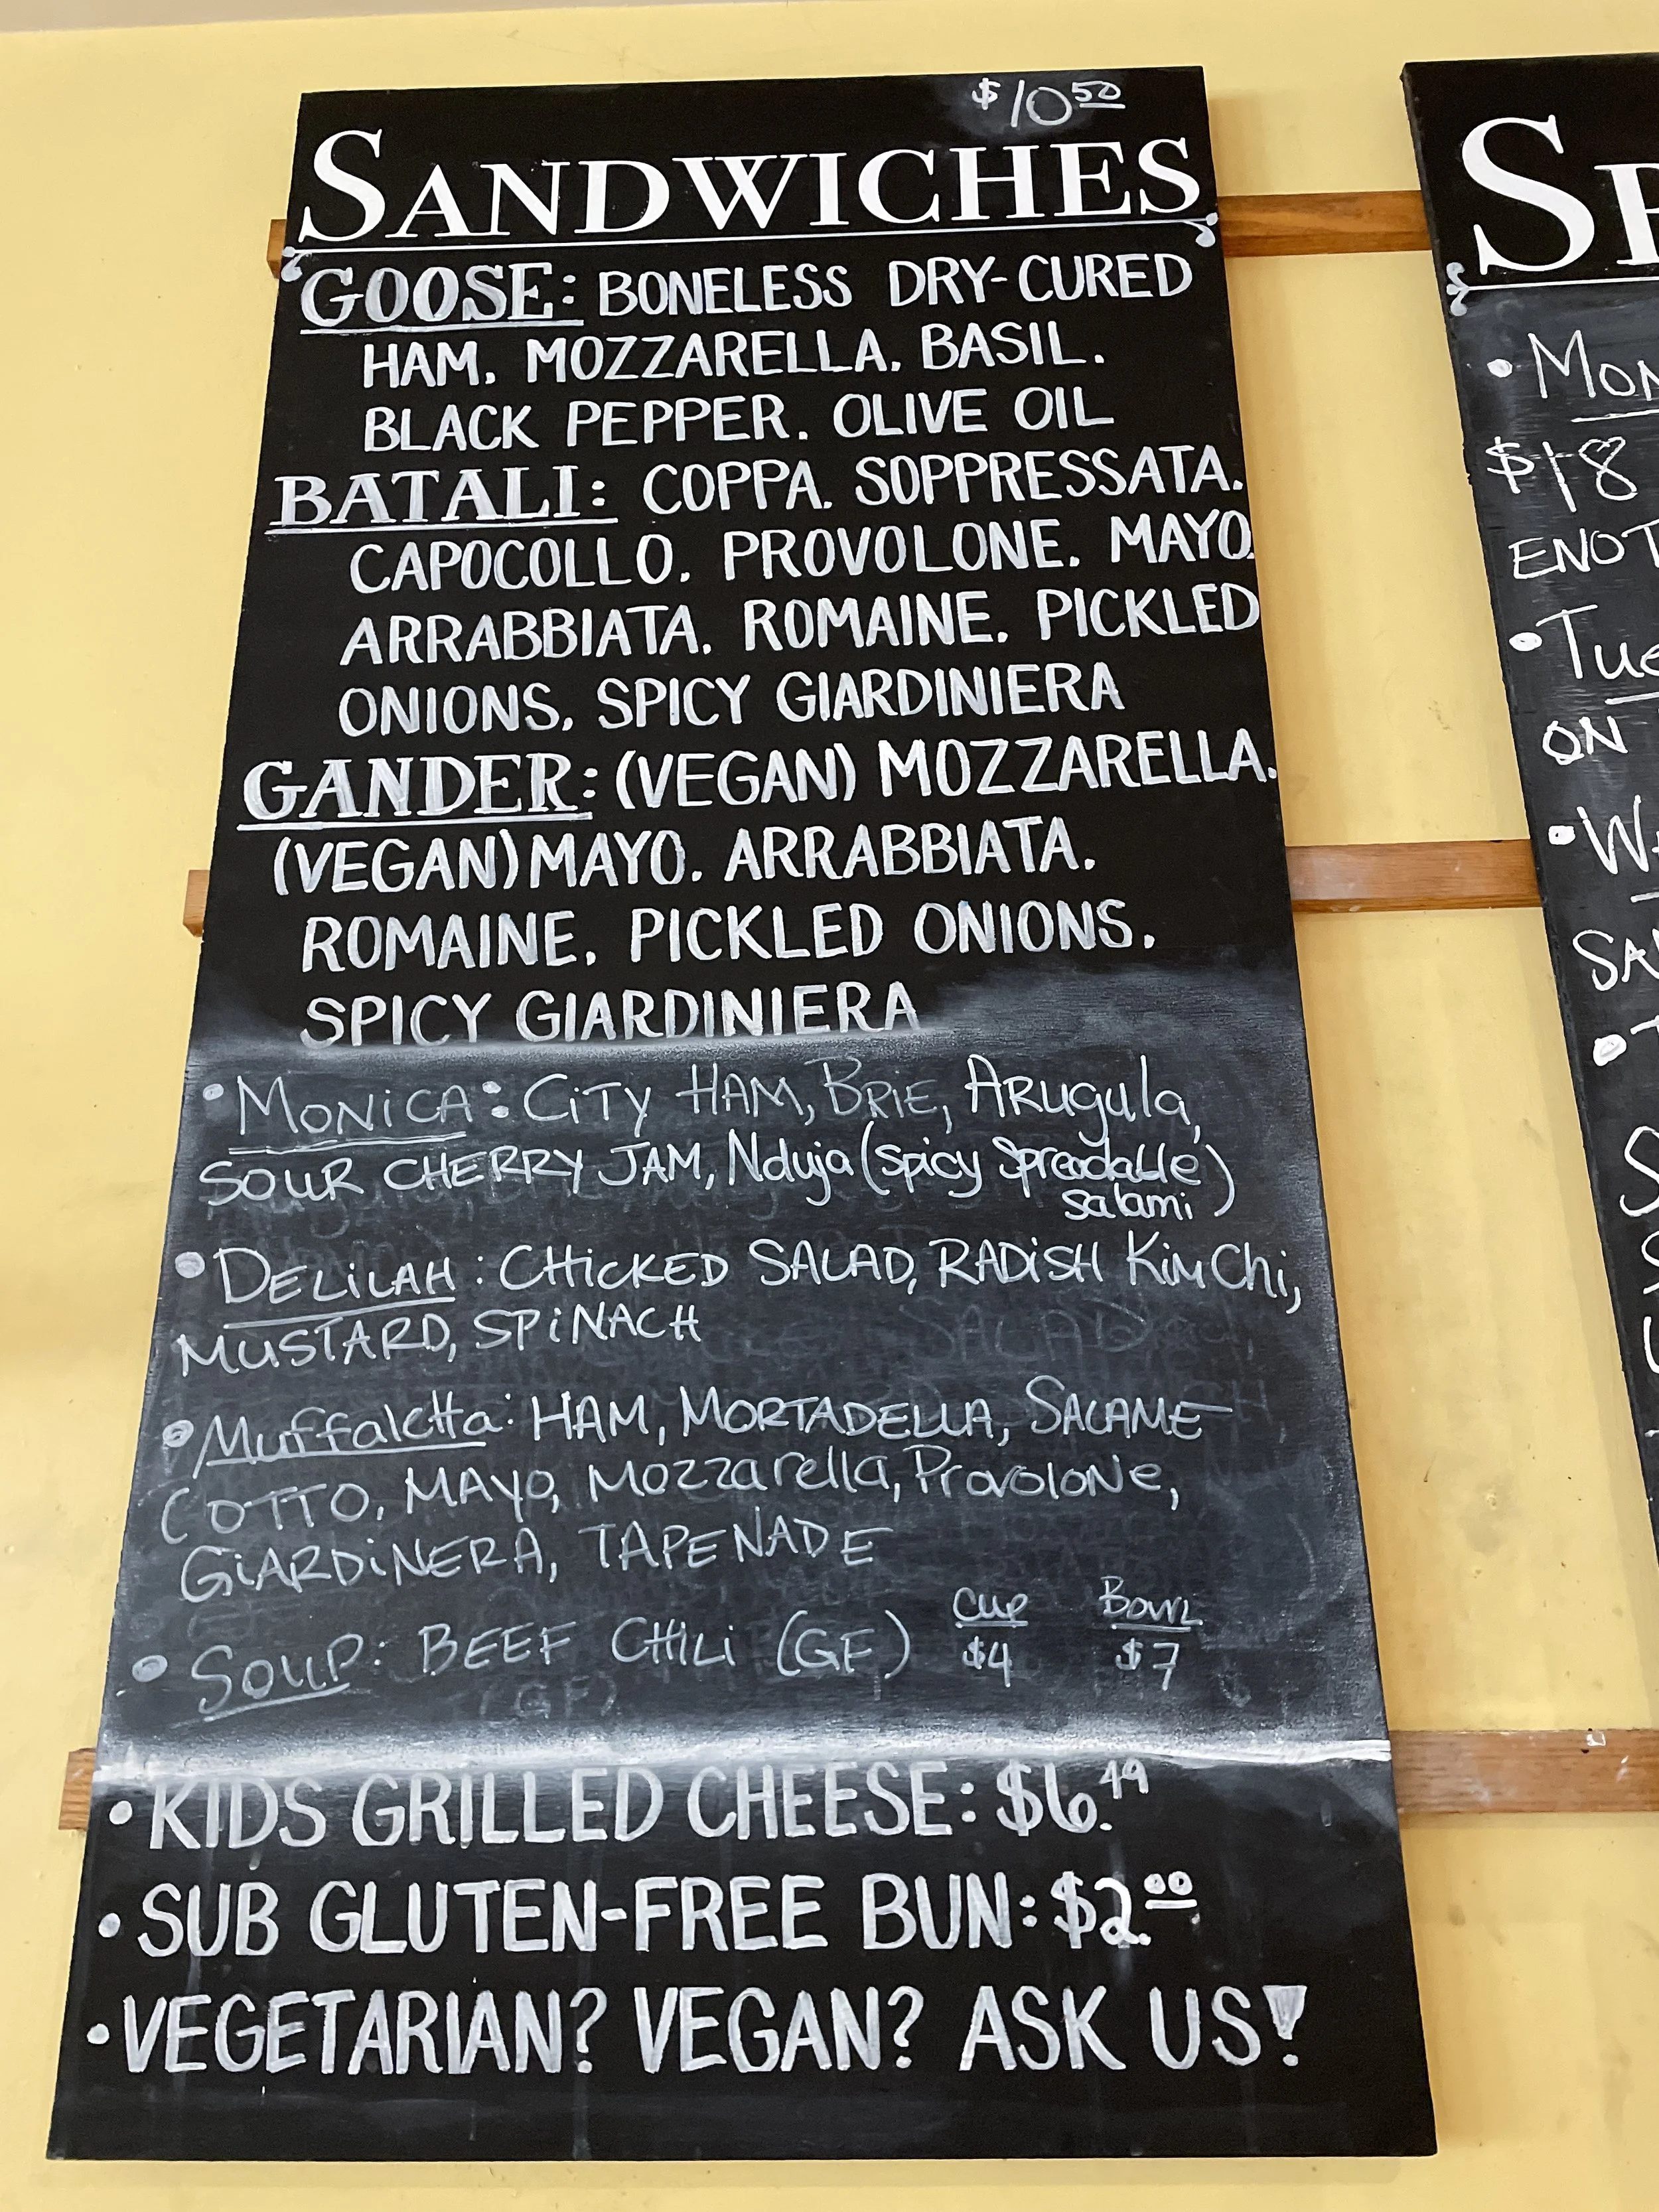 $10.50
SANDWICHES
GOOSE: BONELESS DRY-CURED
HAM. MOZZARELLA. BASIL.
BLACK PEPPER. OLIVE OIL
BATALI: COPPA. SOPPRESSATA.
CAPOCOLLO. PROVOLONE. MAYO.
ARRABBIATA. ROMAINE. PICKLED
ONIONS. SPICY GIARDINIERA
GANDER: (VEGAN) MOZZARELLA.
(VEGAN) MAYO. ARRABBIATA.
ROMAINE. PICKLED ONIONS.
SPICY GIARDINIERA
• MONiCA: CiTY HAM, BRIE, ARugula,
SOUR CHERRY JAM, Nduja (spicy spreadable
salami)
• DELiLAH: CHiCKED SALAD, RADiSH KimChi,
MUSTARD, SPiNACH
• Muffaletta: HAM, MORTADELLA, SALAME
COTTO, MAYO, Mozzarella, ProvoloNe,
GiARDiNERA, TAPENADE
Cup Bowl
• SOUP: BEEF CHiLi (GF) $4 $7
• KIDS GRILLED CHEESE: $6.49
• SUB GLUTEN-FREE BUN: $2.00
• VEGETARIAN? VEGAN? ASK US!
• MON
$18
ENOT
• Tue
ON
• W
SA